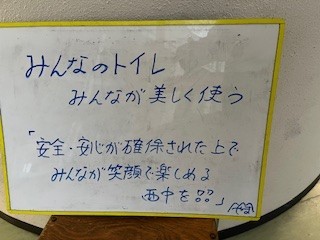 みんなのトイレ
みんなが美しく使う
「安全・安心が確保された上で
みんなが笑顔で楽しめる
西中を??」